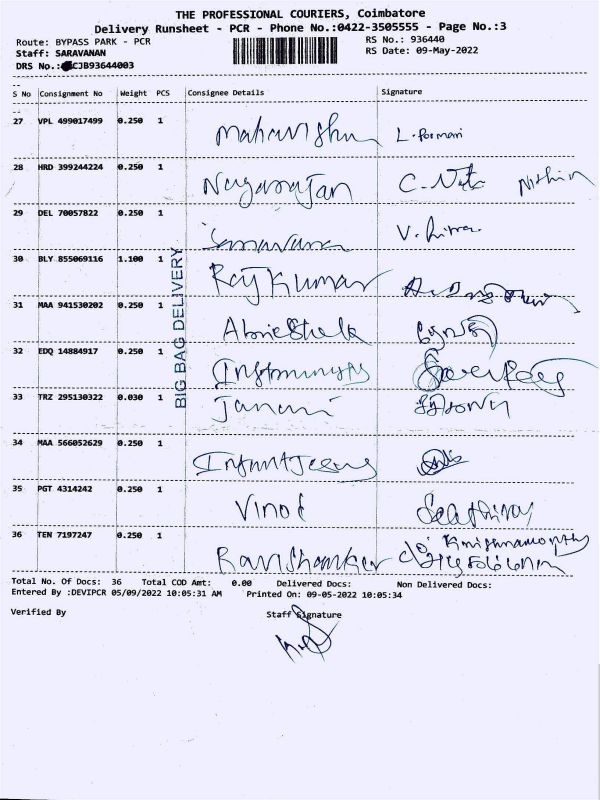 THE PROFESSIONAL COURIERS, Coimbatore
Delivery Runsheet - PCR - Phone No.:0422-3505555 - Page No.:3
Route: BYPASS PARK - PCR RS No.: 936440
Staff: SARAVANAN RS Date: 09-May-2022
DRS No.: CJB93644003
S No Consignment No Weight PCS Consignee Details Signature
27 VPL 499017499 0.250 1 Mahavishnu
28 HRD 399244224 0.250 1 Nagarajan Nithin
29 DEL 70057822 0.250 1 Saravana
30 BLY 855069116 1.100 1 Raj Kumar
31 MAA 941530202 0.250 1
32 EDQ 14884917 0.250 1
33 TRZ 295130322 0.030 1 Janani
34 MAA 566052629 0.250 1
35 PGT 4314242 0.250 1 Vinod
36 TEN 7197247 0.250 1 Ravishanker Krishnamoorthy
BIG BAG DELIVERY
Total No. Of Docs: 36 Total COD Amt: 0.00 Delivered Docs: Non Delivered Docs:
Entered By :DEVIPCR 05/09/2022 10:05:31 AM Printed On: 09-05-2022 10:05:34
Verified By Staff Signature